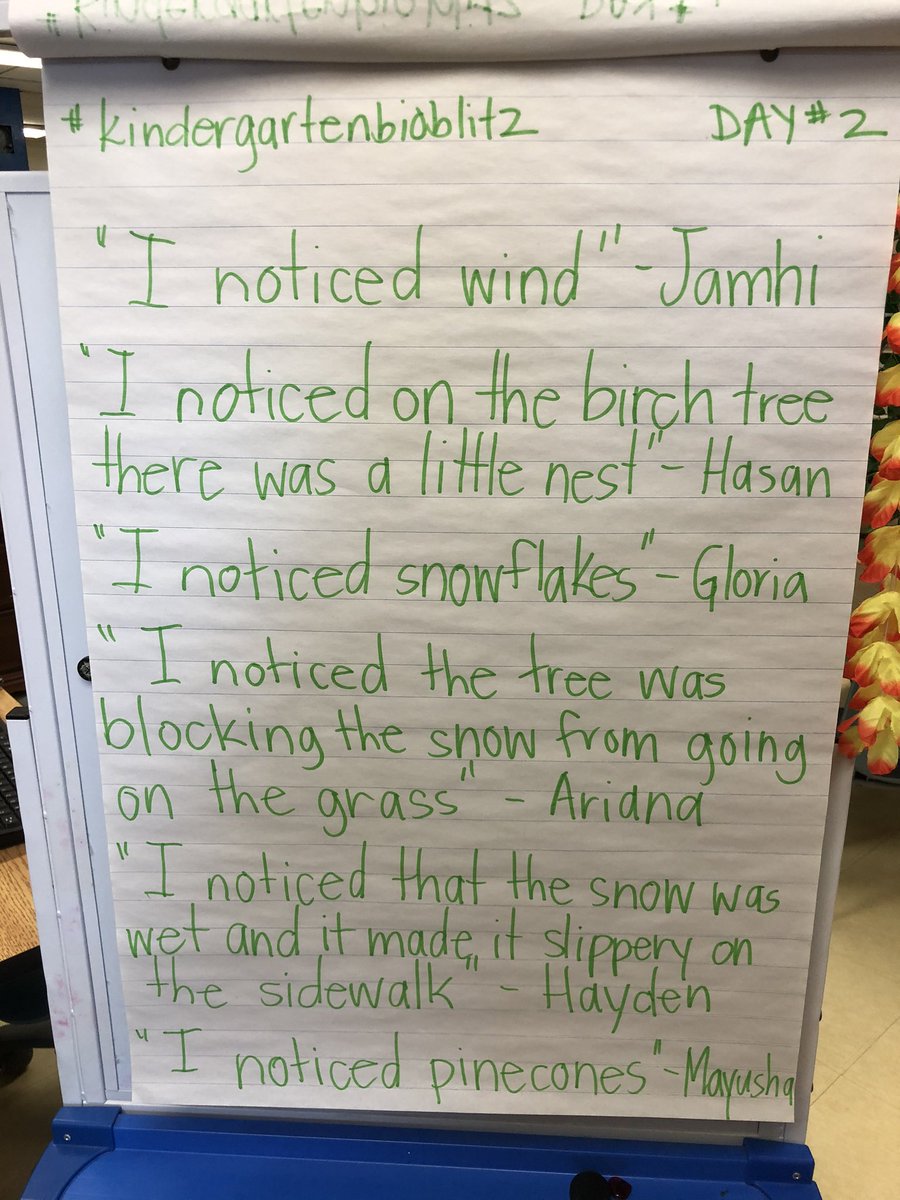 #kindergartenbioblitz DAY #2
"I noticed wind" - Jamhi
"I noticed on the birch tree
there was a little nest" - Hasan
"I noticed snowflakes" - Gloria
"I noticed the tree was
blocking the snow from going
on the grass" - Ariana
"I noticed that the snow was
wet and it made it slippery on
the sidewalk" - Hayden
"I noticed pinecones" - Mayusha